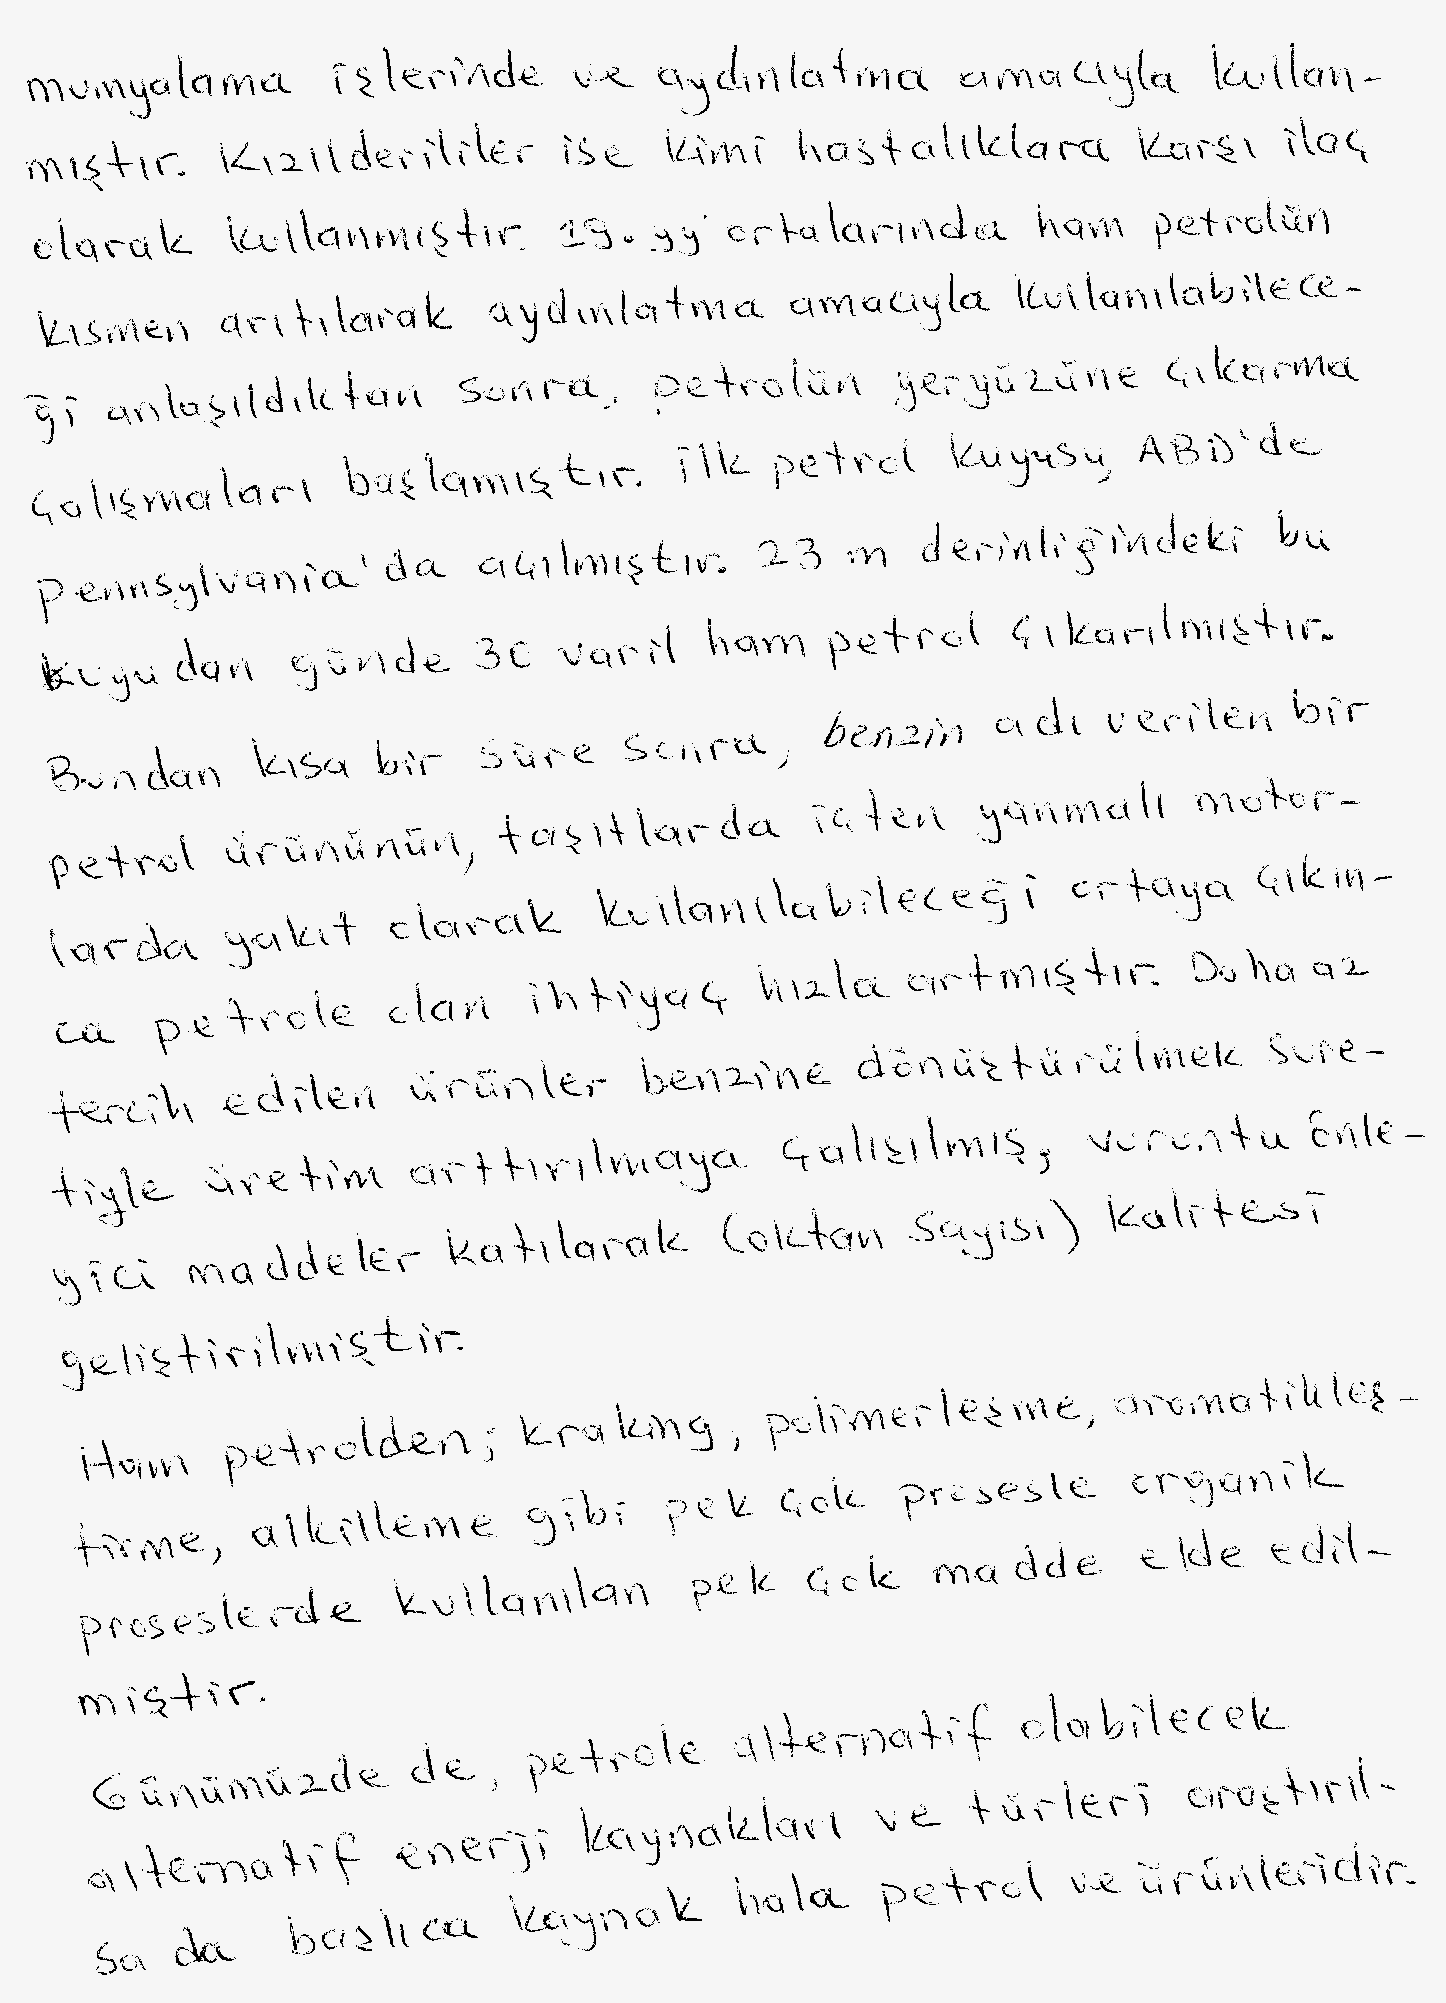 mumyalama işlerinde ve aydınlatma amacıyla kullan-
mıştır. Kızılderililer ise kimi hastalıklara karşı ilaç
olarak kullanmıştır. 19. yy ortalarında ham petrolün
kısmen arıtılarak aydınlatma amacıyla kullanılabilece-
ği anlaşıldıktan sonra, petrolün yeryüzüne çıkarma
çalışmaları başlamıştır. İlk petrol kuyusu, ABD'de
Pennsylvania'da açılmıştır. 23 m derinliğindeki bu
kuyudan günde 30 varil ham petrol çıkarılmıştır.
Bundan kısa bir süre sonra, benzin adı verilen bir
petrol ürününün, taşıtlarda içten yanmalı motor-
larda yakıt olarak kullanılabileceği ortaya çıkın-
ca petrole olan ihtiyaç hızla artmıştır. Daha az
tercih edilen ürünler benzine dönüştürülmek sure-
tiyle üretim arttırılmaya çalışılmış, vuruntu önle-
yici maddeler katılarak (oktan sayısı) kalitesi
geliştirilmiştir.
Ham petrolden; kraking, polimerleşme, aromatikleş-
tirme, alkilleme gibi pek çok prosesle organik
proseslerde kullanılan pek çok madde elde edil-
miştir.
Günümüzde de, petrole alternatif olabilecek
alternatif enerji kaynakları ve türleri araştırıl-
sa da başlıca kaynak hala petrol ve ürünleridir.